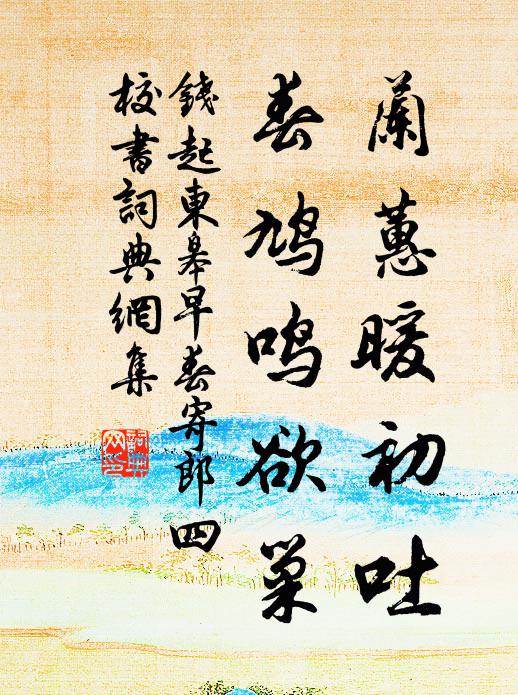 蘭蕙暖初吐
春鳩鳴欲巢
錢起東皋早春寄郎四
校書詞典網集